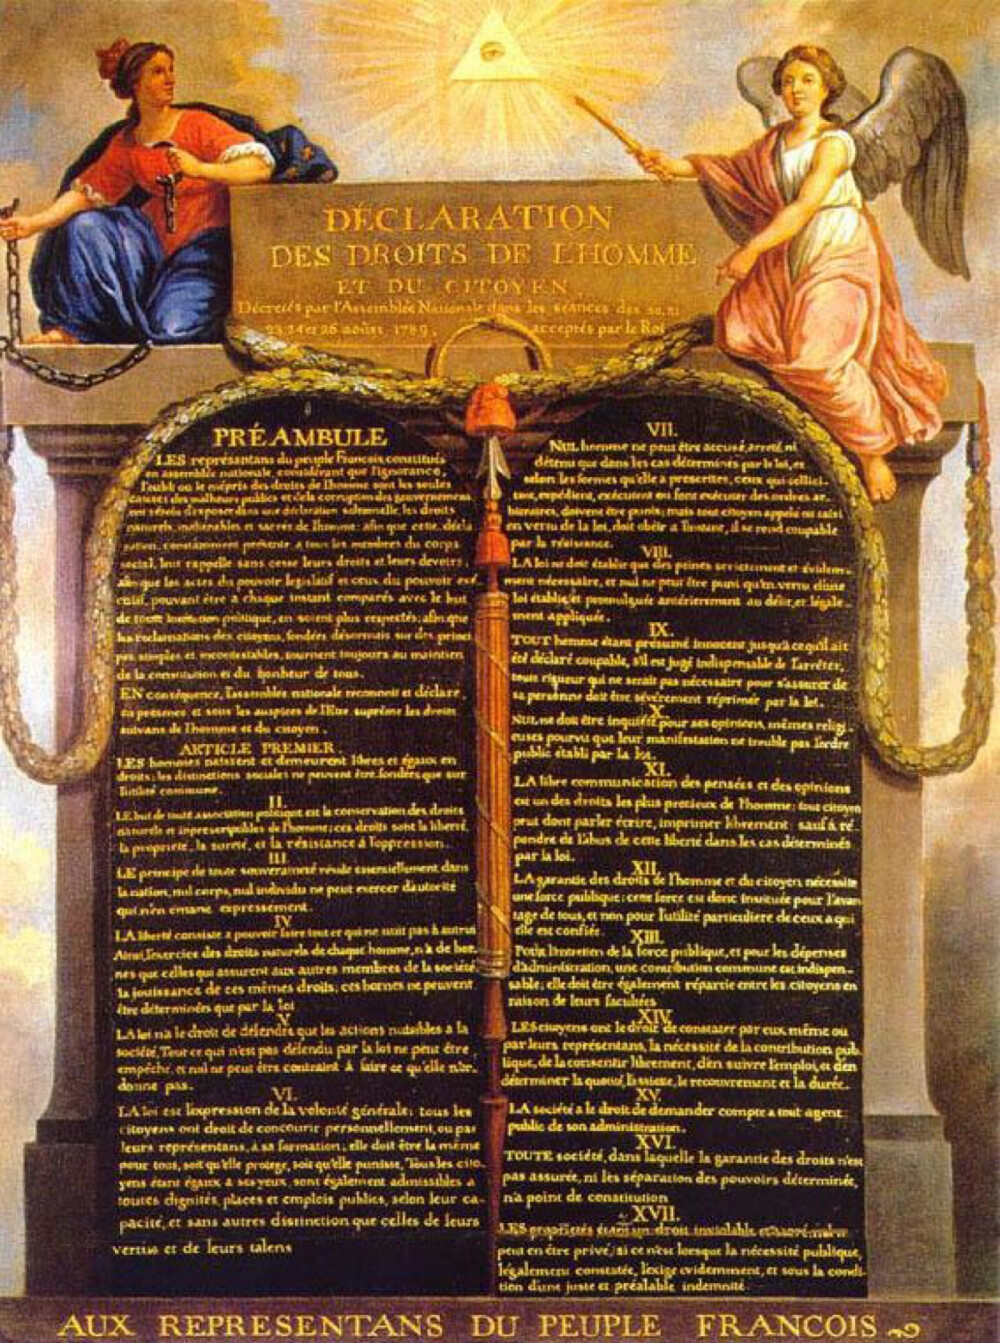 DÉCLARATION
DES DROITS DE L'HOMME
ET DU CITOYEN
Décretés par l'Assemblée Nationale dans les séances des 20, 21
23 24 et 26 aoûst 1789, acceptés par le Roi
PRÉAMBULE
LES représantans du peuple François constitués
en assemblée nationale, considérant que l'ignorance,
l'oubli ou le mépris des droits de l'homme sont les seules
causes des malheurs publics et de la corruption des gouvernemens
ont résolu d'exposer dans une déclaration solemnelle, les droits
naturels, inaliénables et sacrés de l'homme, afin que cette, décla
ration, constamment présente a tous les membres du corps
social, leur rappelle sans cesse leurs droits et leurs devoirs,
afin que les actes du pouvoir legislatif et ceux du pouvoir exé
cutif, pouvant être a chaque instant comparés avec le but
de toute institution politique, en soient plus respectés; afin que
les reclamations des citoyens, fondées désormais sur des princi
pes simples et incontestables, tournent toujours au maintien
de la constitution et du bonheur de tous.
EN conséquence, l'assemblée nationale reconnoit et déclare,
en presence et sous les auspices de l'Etre suprême les droits
suivans de l'homme et du citoyen.
ARTICLE PREMIER.
LES hommes naissent et demeurent libres et égaux en
droits; les distinctions sociales ne peuvent être fondées que sur
l'utilité commune.
II.
LE but de toute association politique est la conservation des droits
naturels et inprescriptibles de l'homme; ces droits sont la liberté,
la propriété, la sureté, et la résistance à l'oppression.
III
LE principe de toute souveraineté réside essentiellement dans
la nation, nul corps, nul individu ne peut exercer d'autorité
qui n'en émane expressement.
IV
LA liberté consiste a pouvoir faire tout ce qui ne nuit pas à autrui
Ainsi, l'exercice des droits naturels de chaque homme, n'a de bor-
nes que celles qui assurent aux autres membres de la société
la jouissance de ces mêmes droits; ces bornes ne peuvent
être déterminées que par la loi
V
LA loi n'a le droit de défendre que les actions nuisibles a la
société. Tout ce qui n'est pas défendu par la loi ne peut être
empêché, et nul ne peut être contraint à faire ce qu'elle n'or-
donne pas.
VI.
LA loi est l'expression de la volonté générale; tous les
citoyens ont droit de concourir personnellement, ou par
leurs représentans, à sa formation; elle doit être la même
pour tous, soit qu'elle protege, soit qu'elle punisse, Tous les cito-
yens étant égaux à ses yeux, sont également admissibles à
toutes dignités, places et emplois publics, selon leur ca-
pacité, et sans autres distinction que celles de leurs
vertus et de leurs talens
VII.
NUL homme ne peut être accusé, arreté, ni
détenu que dans les cas déterminés par la loi, et
selon les formes qu'elle à prescrites, ceux qui sollici-
tent, expédient, exécutent ou font exécuter des ordres ar-
bitraires, doivent être punis; mais tout citoyen appelé ou saisi
en vertu de la loi, doit obéir a l'instant, il se rend coupable
par la résistance.
VIII.
LA loi ne doit établir que des peines strictement et évidem-
ment nécessaire, et nul ne peut être puni qu'en vertu d'une
loi établie et promulguée antérierement au délit, et légale-
ment appliquée.
IX.
TOUT homme étant présumé innocent jusqu'à ce qu'il ait
été déclaré coupable, s'il est jugé indispensable de l'arrêter,
toute rigueur qui ne serait pas nécessaire pour s'assurer de
sa personne doit être sévèrement réprimée par la loi.
X.
NUL ne doit être inquiété pour ses opinions, mêmes religi
euses pourvu que leur manifestation ne trouble pas l'ordre
public établi par la loi.
XI.
LA libre communication des pensées et des opinions
est un des droits les plus precieux de l'homme; tout citoyen
peut donc parler écrire, imprimer librement; sauf à ré-
pondre de l'abus de cette liberté dans les cas déterminés
par la loi.
XII.
LA garantie des droits de l'homme et du citoyen nécessite
une force publique; cette force est donc instituée pour l'avan
tage de tous, et non pour l'utilité particuliere de ceux a qui
elle est confiée.
XIII.
POUR l'entretien de la force publique, et pour les dépenses
d'administration, une contribution commune est indispen-
sable; elle doit être également répartie entre les citoyens en
raison de leurs facultées
XIV.
LES citoyens ont le droit de constater par eux même ou
par leurs représentans, la nécessité de la contribution pub-
lique, de la consentir librement, d'en suivre l'emploi, et d'en
déterminer la quotité, l'assiette, le recouvrement et la durée.
XV.
LA société a le droit de demander compte a tout agent
public de son administration.
XVI.
TOUTE société, dans laquelle la garantie des droits n'est
pas assurée, ni les séparation des pouvoirs déterminée,
n'a point de constitution
XVII.
LES propriétés étant un droit inviolable et sacré, nul ne
peut en être privé, si ce n'est lorsque la nécessité publique,
légalement constatée, l'exige evidemment, et sous la condi-
tion d'une juste et préalable indemnité.
AUX REPRESENTANS DU PEUPLE FRANCOIS